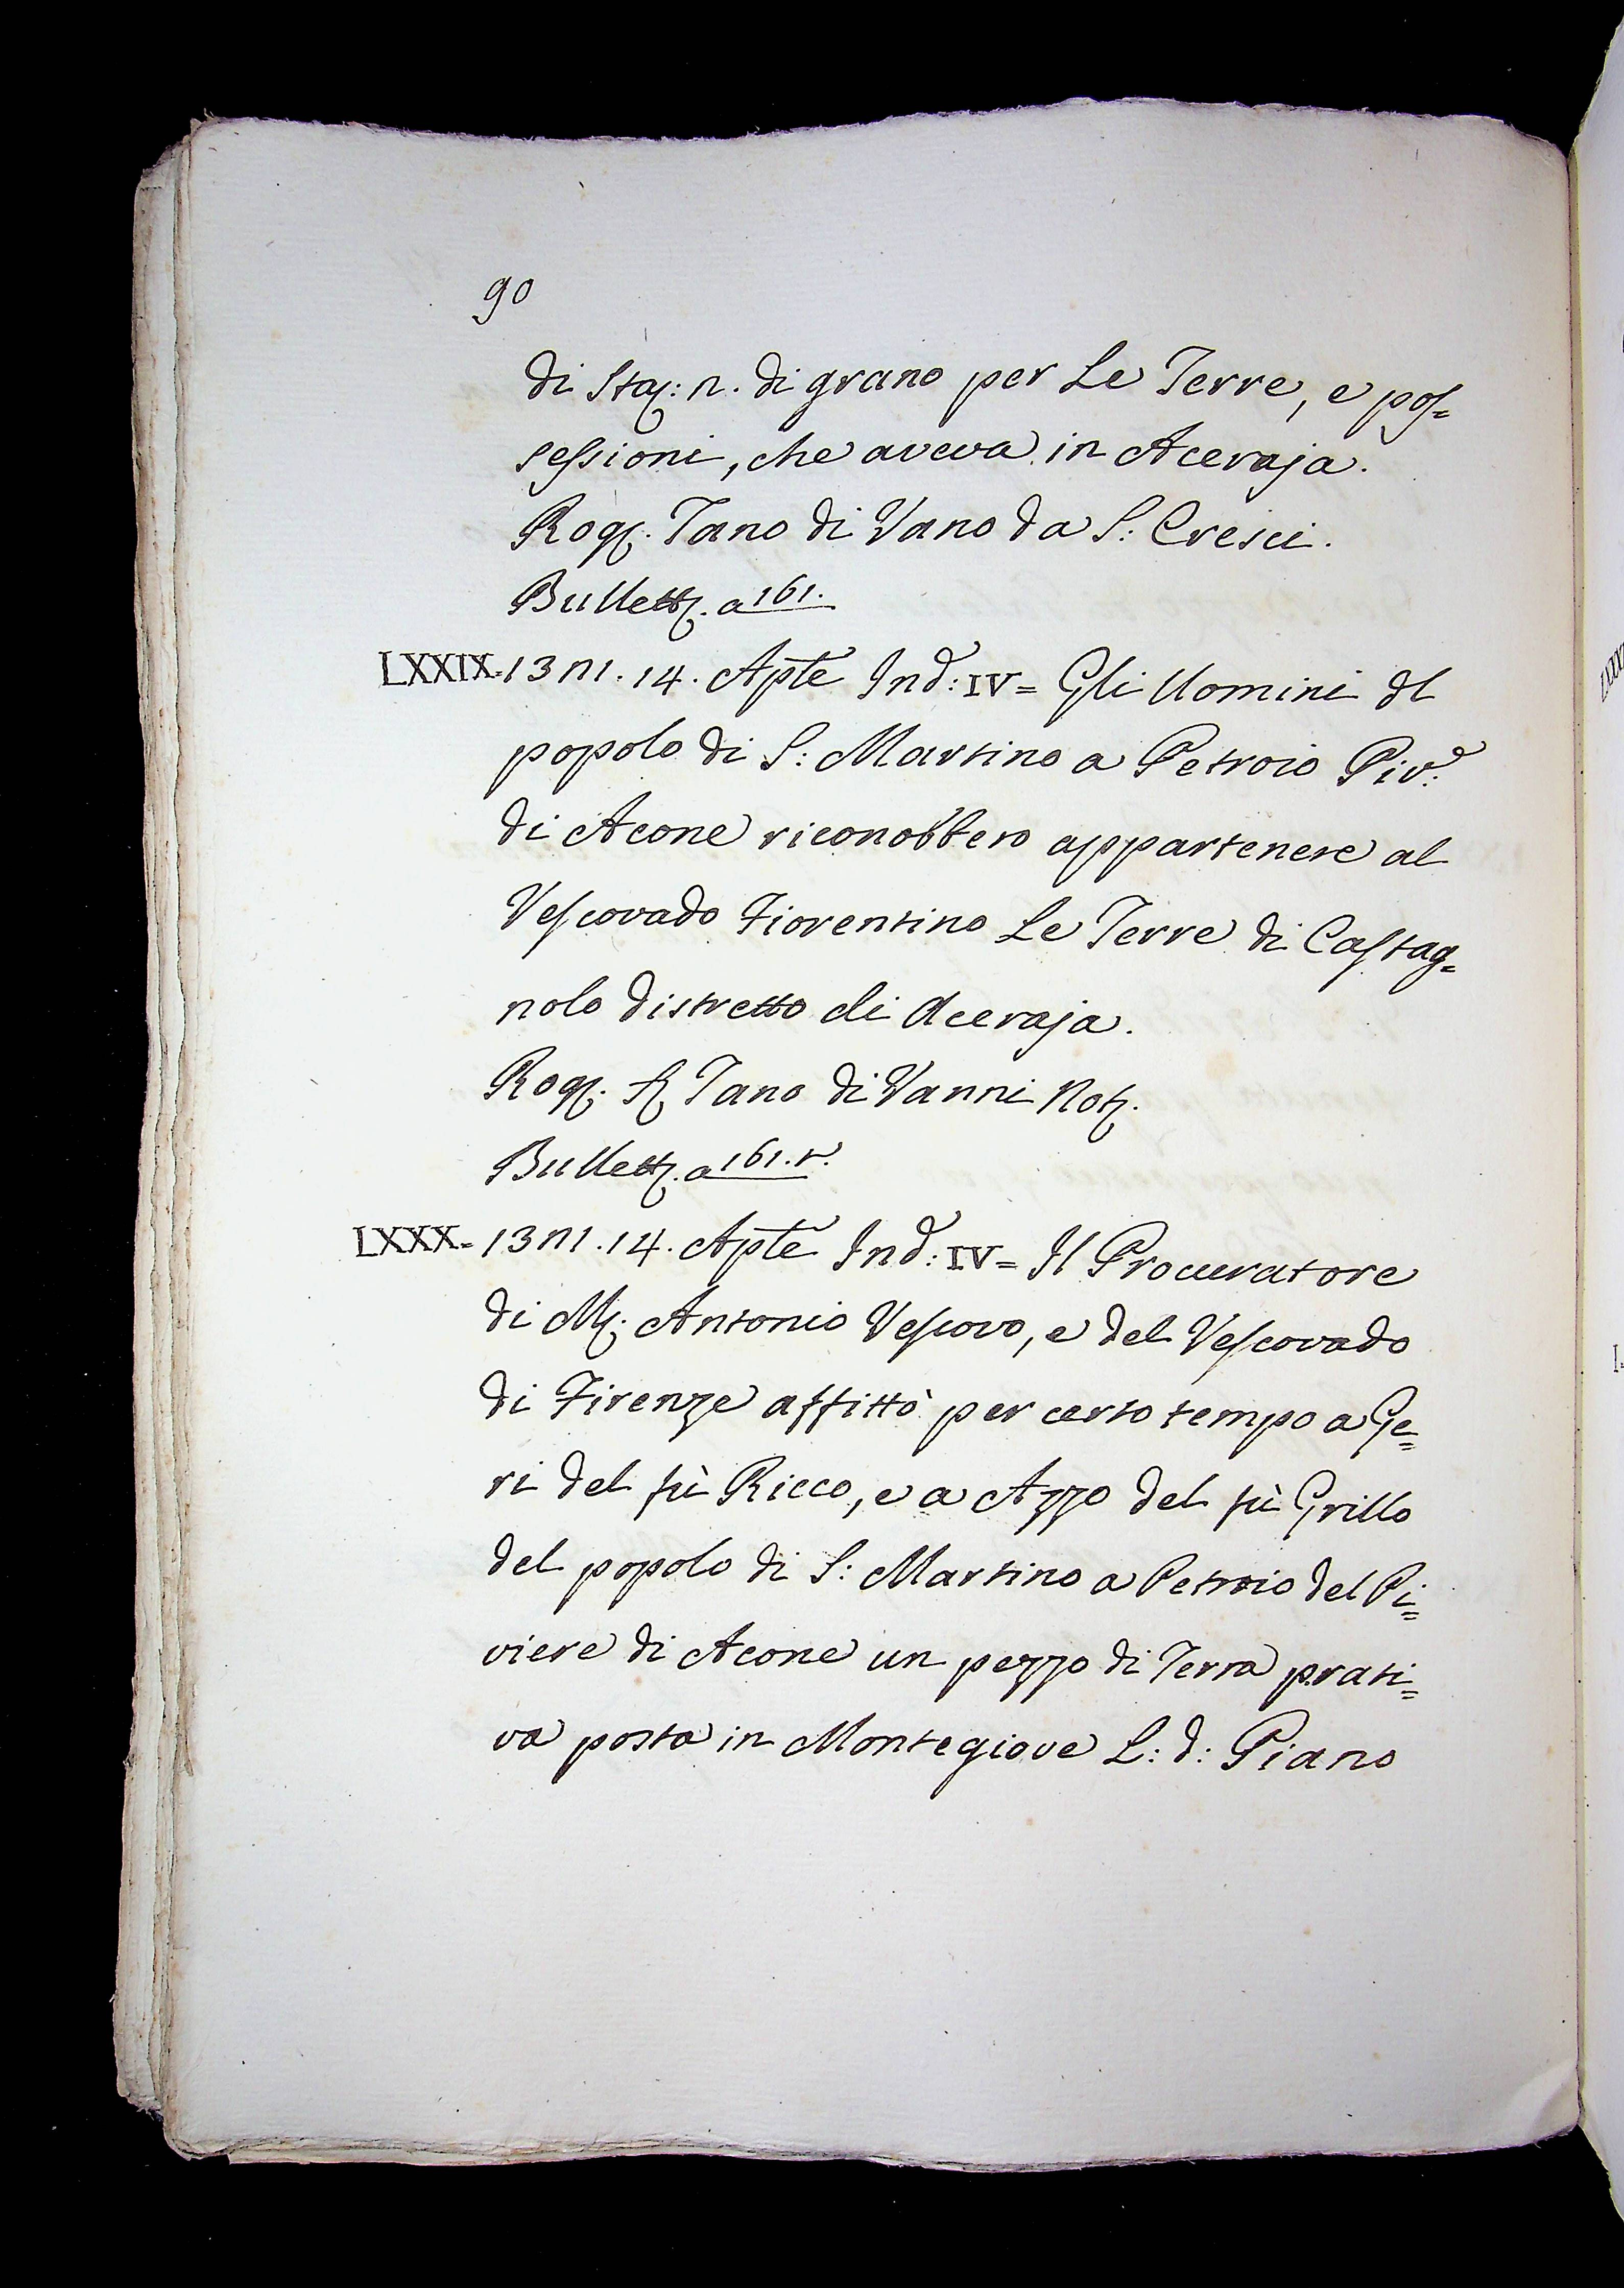 90
di Staj: n. di grano per Le Terre, e pos=
sessioni, che aveva in Aceraja.
Rog. Tano di Vano da S: Cresci.
Bullett. a 161.
LXXIX. 1321. 14. Apte Ind: IV= Gli Uomini dl
popolo di S: Martino a Petroio Piv.e
di Acone riconobbero appartenere al
Vescovado Fiorentino Le Terre di Castag=
nolo distretto di Aceraja.
Rog. Tano di Vanni Not.
Bullett. a 161. r.
LXXX= 1321. 14. Apte Ind: IV= Il Procuratore
di M. Antonio Vescovo, e del Vescovado
di Firenze affittò per certo tempo a Ge=
ri del fù Ricco, e a Azzo del fù Grillo
del popolo di S: Martino a Petroio del Pi=
viere di Acone un pezzo di Terra prati=
va posta in Montegiove L: d: Piano